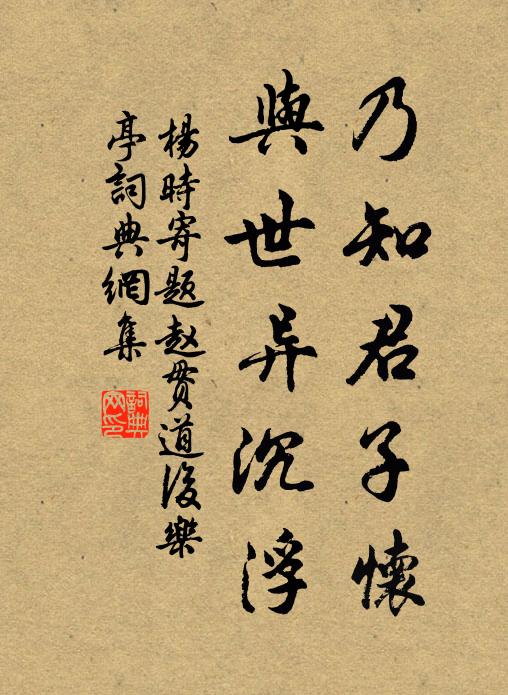 乃知君子懷
與世异沉浮
楊時寄題赵貫道後樂
亭詞典網集
詞典
网印